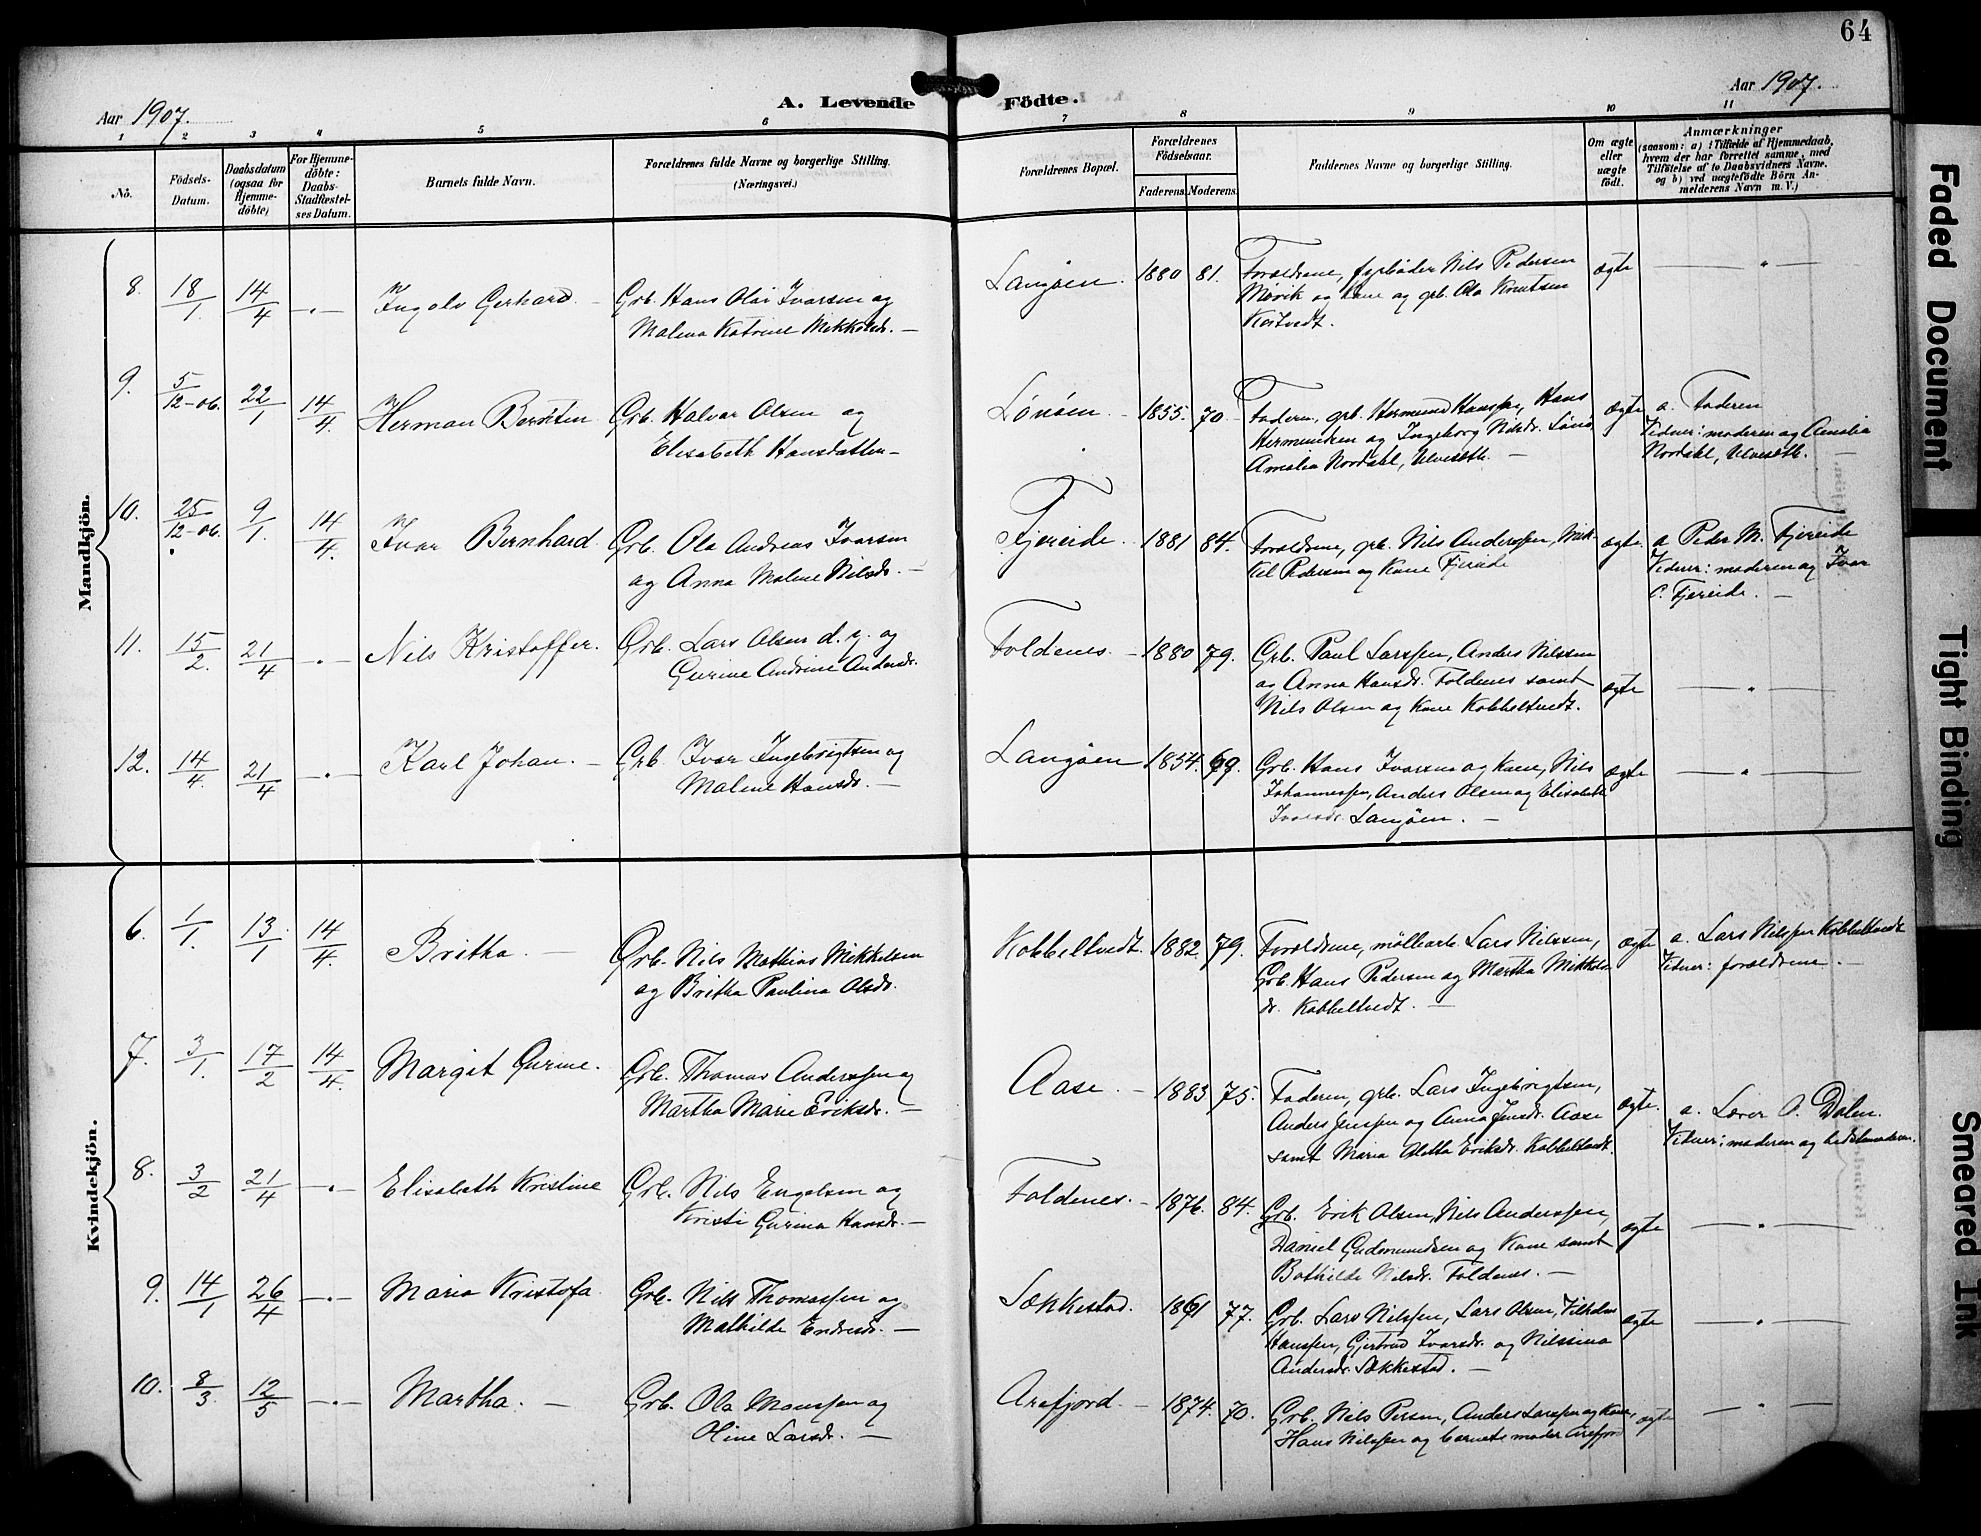 64
Aar 1907.
A. Levende Födte.
Aar 1907.
1 2 3 4 5 6 7 8 9 10 11
No.
Födsels-
Datum.
Daabsdatum
(ogsaa for
Hjemme-
döbte)
For Hjemme-
döbte:
Daabs-
Stadfæstel-
ses Datum.
Barnets fulde Navn.
Forældrenes fulde Navne og borgerlige Stilling.
(Næringsvei.)
Forældrenes Bopæl.
Forældrenes
Födselsaar.
Faderens.
Moderens.
Faddernes Navne og borgerlige Stilling.
Om ægte
eller
uægte
födt.
Anmærkninger
(saasom: a) i Tilfælde af Hjemmedaab,
hvem der har forrettet samme, med
Tilföielse af to Daabsvidners Navne,
og b) ved uægtefödte Börn An-
melderens Navn m. V.)
Mandkjön.
8. 18/1 14/4 —„— Ingolv Gerhard. Grb. Hans Olai Ivarsen og
Malena Katrine Mikkelsdr. —
Langøen. 1880 81.
Forældrene, fyrbøder Nils Pedersen
Møvik og kone og grb. Ola Knutsen
ægte — „ —
9. 5/12-06. 22/1 14/4. Herman Berntin Grb. Halvar Olsen og
Elisabeth Hansdatter —
Lønøen. — 1855. 70. —
Faderen, grb. Hermund Hanssen, Hans
Hermundsen og Ingeborg Nilsdr. Lønø
Amalia Nordahl, Ulveseth. —
ægte
a. Faderen
Vidner: moderen og Amalia
Nordahl, Ulveseth. —
10. 25/12-06. 9/1. 14/4. Ivar Bernhard. Grb. Ola Andreas Ivarsen
og Anna Malene Nilsdr. —
Fjereide. — 1881 84.
Forældrene, grb. Nils Anderssen, Mik-
kel Pedersen og Kone Fjereide
ægte.
a Peder M. Fjereide
Vidner: moderen og Ivar
C. Fjereide. —
11. 15/2. 21/4 —„— Nils Kristoffer. Grb. Lars Olsen d. y. og
Gurine Andrine Andersdr.
Foldenes. — 1880 79.
Grb. Paul Larssen, Anders Nilssen
og Anna Hansdr. Foldenes samt
Nils Olsen og Kone Kobbeltvedt.
ægte — „ —
12. 14/4. 21/4 —„— Karl Johan. — Grb. Ivar Ingebrigtsen og
Malene Hansdr. —
Langøen 1854. 69.
Grb. Hans Ivarsen og Kone, Nils
Johannessen, Anders Olsen og Elisabeth
Ivarsdr. Langøen. —
ægte — „ —
Kvindekjön.
6. 1/1. 13/1 14/4. Britha. — Grb. Nils Mathias Mikkelsen
og Britha Paulina Olsdr.
Kobbeltvedt. 1882. 79.
Forældrene, møllearb. Lars Nilssen,
Grb. Hans Pedersen og Martha Mikkels
dr. Kobbeltvedt. —
ægte
a. Lars Nilssen Kobbeltvedt
Vidner: forældrene. —
7. 3/1. 17/2 14/4. Margit Gurine. Grb. Thomas Anderssen og
Martha Marie Eriksdr. —
Aase. — 1883 75.
Faderen, grb. Lars Ingebrigtsen,
Anders Jenssen og Anna Jensdr. Aase
samt Maria Aletta Eriksdr. Kobbeltvedt.
ægte.
a. Lærer O. Dalen.
Vidner: moderen og bedstemoderen.
8. 3/2 21/4 —„— Elisabeth Kristine Grb. Nils Engelsen og
Kristi Gurina Hansdr. —
Foldenes. — 1876. 84.
Grb. Erik Olsen, Nils Anderssen,
Daniel Gudmundsen og Kone samt
Bothilde Nilsdr. Foldenes. —
ægte — „ —
9. 14/1 26/4 —„— Maria Kristofa Grb. Nils Thomassen og
Mathilde Endresdr. —
Sækkestad. 1861 77.
Grb. Lars Nilssen, Lars Olsen, Vilhelm
Hanssen, Gjertrud Ivarsdr. og Nilssina
Andersdr. Sækkestad. —
ægte — „ —
10. 8/3. 12/5 —„— Martha. — Grb. Ola Monssen og
Oline Larsdr. —
Arefjord. — 1874. 70.
Grb. Nils Persen, Anders Larssen og Kone,
Hans Nilssen og barnets moder Arefjord
ægte — „ —
Faded Document
Tight Binding
Smeared Ink